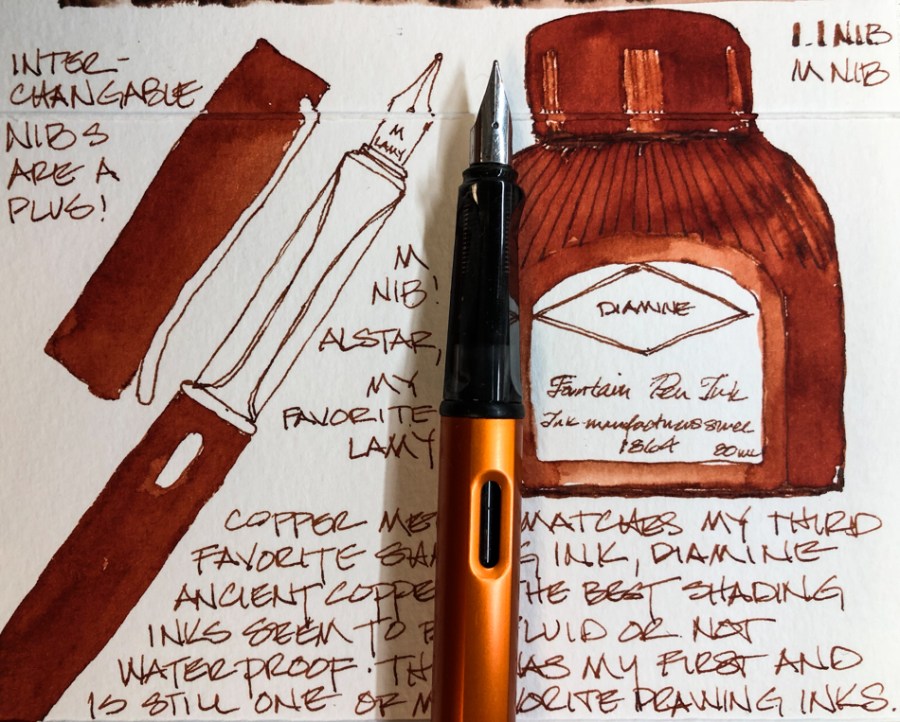 INTER-
CHANGABLE
NIBS
ARE A
PLUS!
1.1 NIB
M NIB
M
LAMY
M
NIB!
ALSTAR,
MY
FAVORITE
LAMY
DIAMINE
Fountain Pen Ink
Ink manufacturers since
1864 80 ml
COPPER MATCHES MY THIRD
FAVORITE INK, DIAMINE
ANCIENT BEST SHADING
INKS SEEM TO OR NOT
WATERPROOF. MY FIRST AND
IS STILL ONE DRAWING INKS.